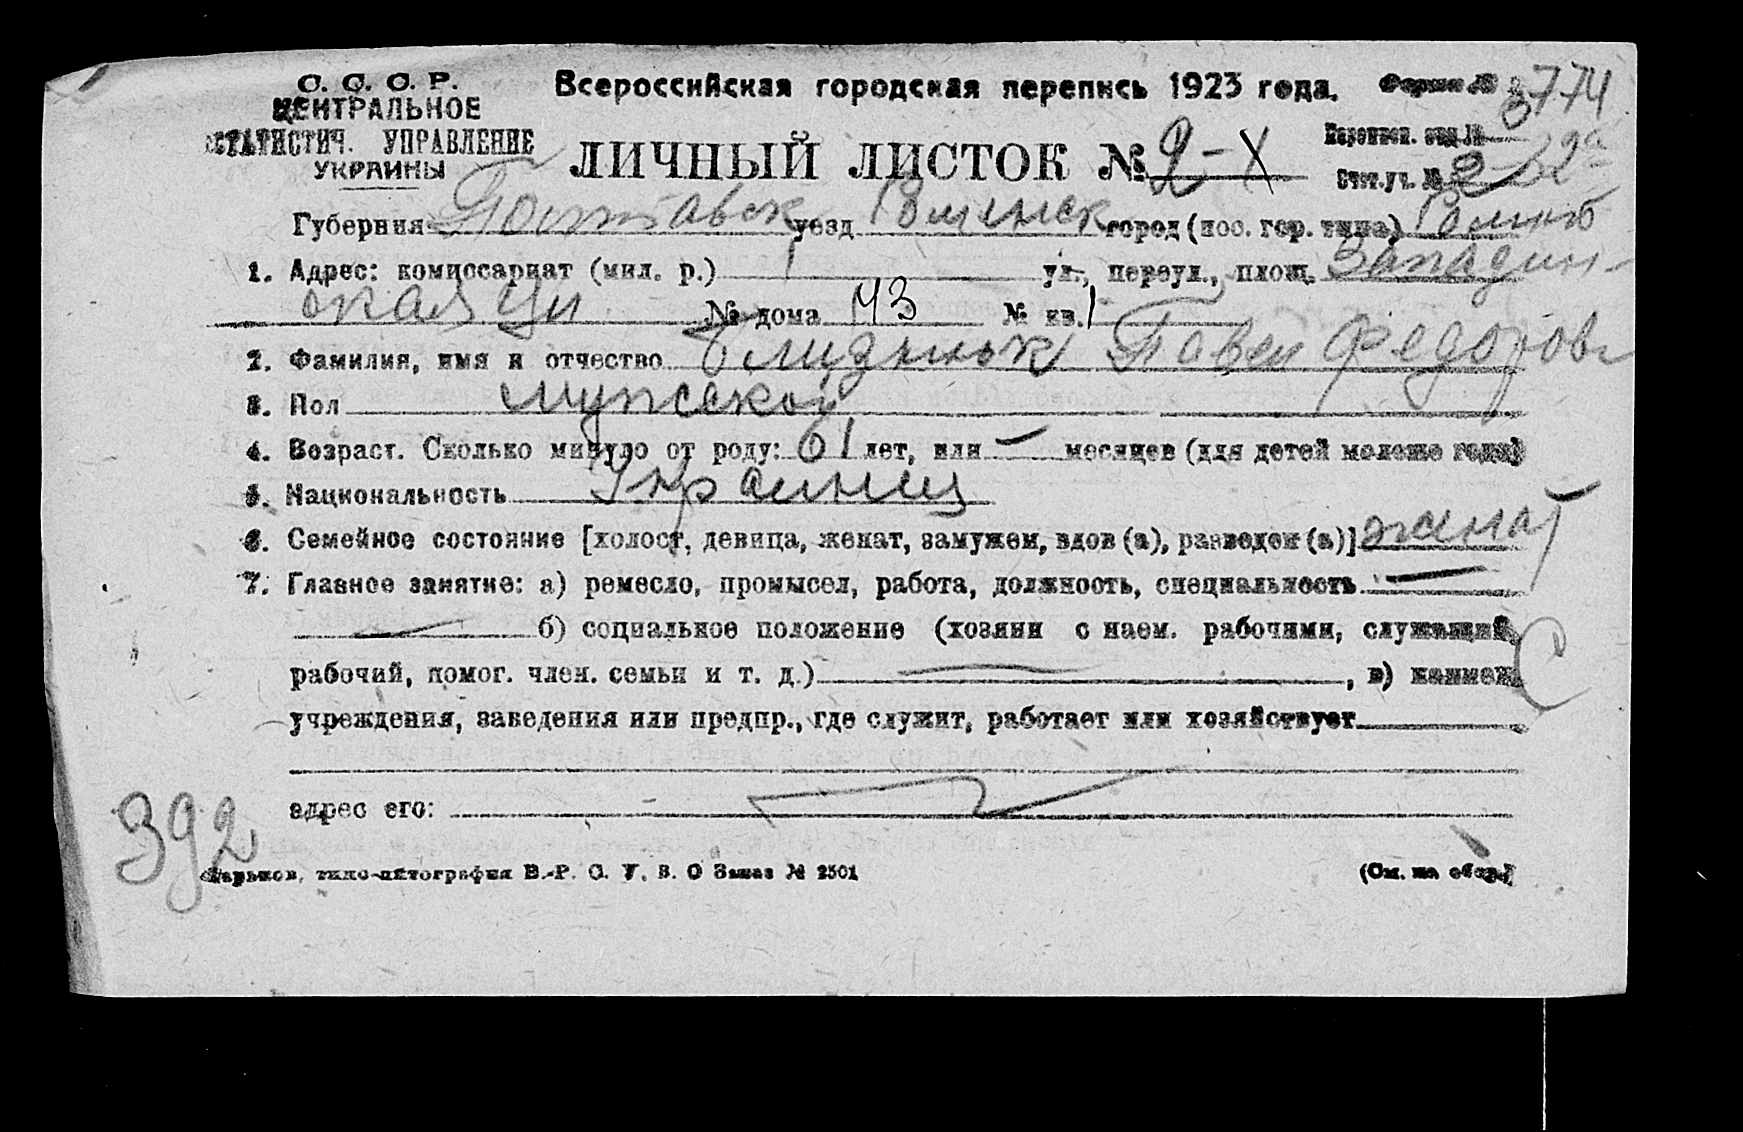 С. С. С. Р.
ЦЕНТРАЛЬНОЕ
СТАТИСТИЧ. УПРАВЛЕНИЕ
УКРАИНЫ
Всероссийская городская перепись 1923 года. Форма №
3774
ЛИЧНЫЙ ЛИСТОК № 2-X
Переписн. отд. №
Счет. уч. № 2
Губерния Полтавск уезд Роменск город (пос. гор. типа) Ромны
1. Адрес: комиссариат (мил. р.) 1 ул., переул., площ. Западин-
ская ул № дома 43 № кв. 1
2. Фамилия, имя и отчество Павел Федоров
3. Пол мужской
4. Возраст. Сколько минуло от роду: 61 лет, или — месяцев (для детей моложе года)
5. Национальность Украинец
6. Семейное состояние [холост, девица, женат, замужем, вдов (а), разведен (а)] женат
7. Главное занятие: а) ремесло, промысел, работа, должность, специальность —
— б) социальное положение (хозяин с наем. рабочими, служащий,
рабочий, помог. член. семьи и т. д.) — , в) наимен.
С
учреждения, заведения или предпр., где служит, работает или хозяйствует
адрес его:
392
Харьков, типо-литография В.-Р. С. У. В. О Заказ № 2501
(См. на обор.)